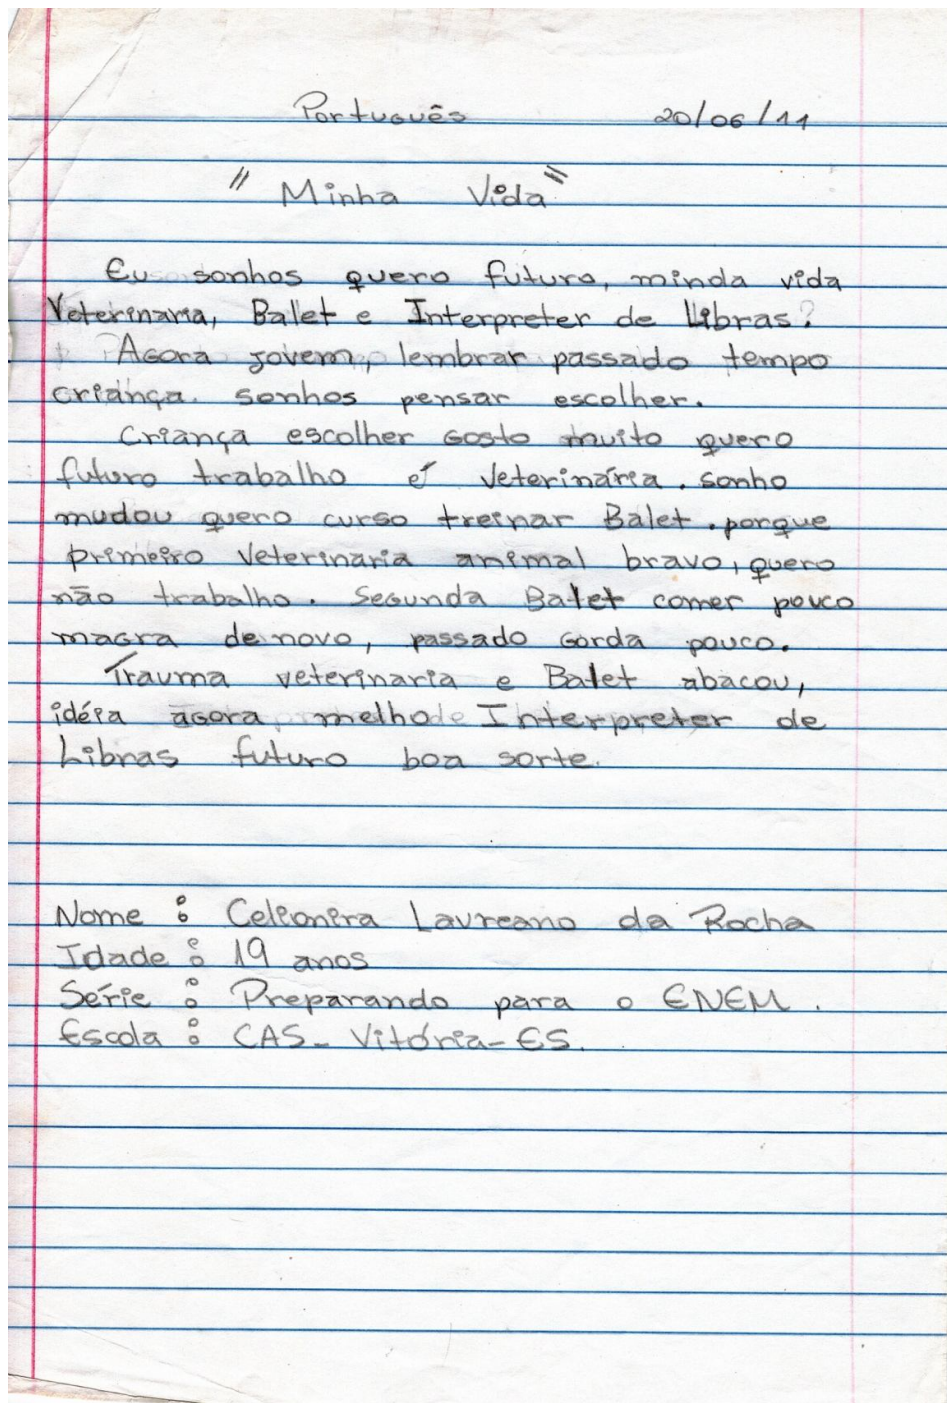 Português 20/06/11
" Minha Vida"
Eu sonhos quero futuro, minda vida
Veterinaria, Balet e Interpreter de Libras?
Agora jovem, lembrar passado tempo
criança. sonhos pensar escolher.
Criança escolher gosto muito quero
futuro trabalho é veterinária. sonho
mudou quero curso treinar Balet. porque
primeiro veterinaria animal bravo, quero
não trabalho. Segunda Balet comer pouco
magra de novo, passado gorda pouco.
Trauma veterinaria e Balet abacou,
idéia agora melho de Interpreter de
Libras futuro boa sorte.
Nome : Celionira Laureano da Rocha
Idade : 19 anos
Série : Preparando para o ENEM.
Escola : CAS- Vitória-ES.